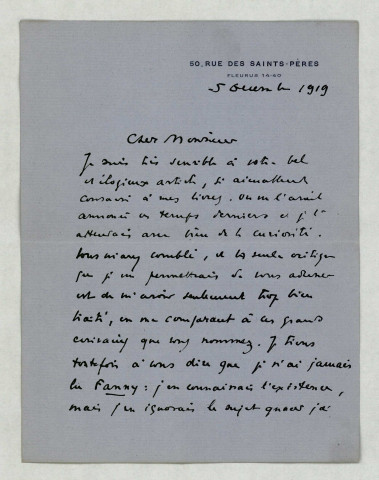 50, RUE DES SAINTS-PÈRES
FLEURUS 14-60
5 Décembre 1919
Cher Monsieur
Je suis très sensible à votre bel
et élogieux article, si aimablement
consacré à mes livres. On me l'avait
annoncé ces temps derniers et je l'
attendais avec bien de la curiosité.
Vous m'avez comblé, et la seule critique
que je me permettrais de vous adresser
est de m'avoir seulement trop bien
traité, en me comparant à ces grands
écrivains que vous nommez. Je tiens
toutefois à vous dire que je n'ai jamais
lu Fanny : j'en connaissais l'existence,
mais j'en ignorais le sujet quand j'ai